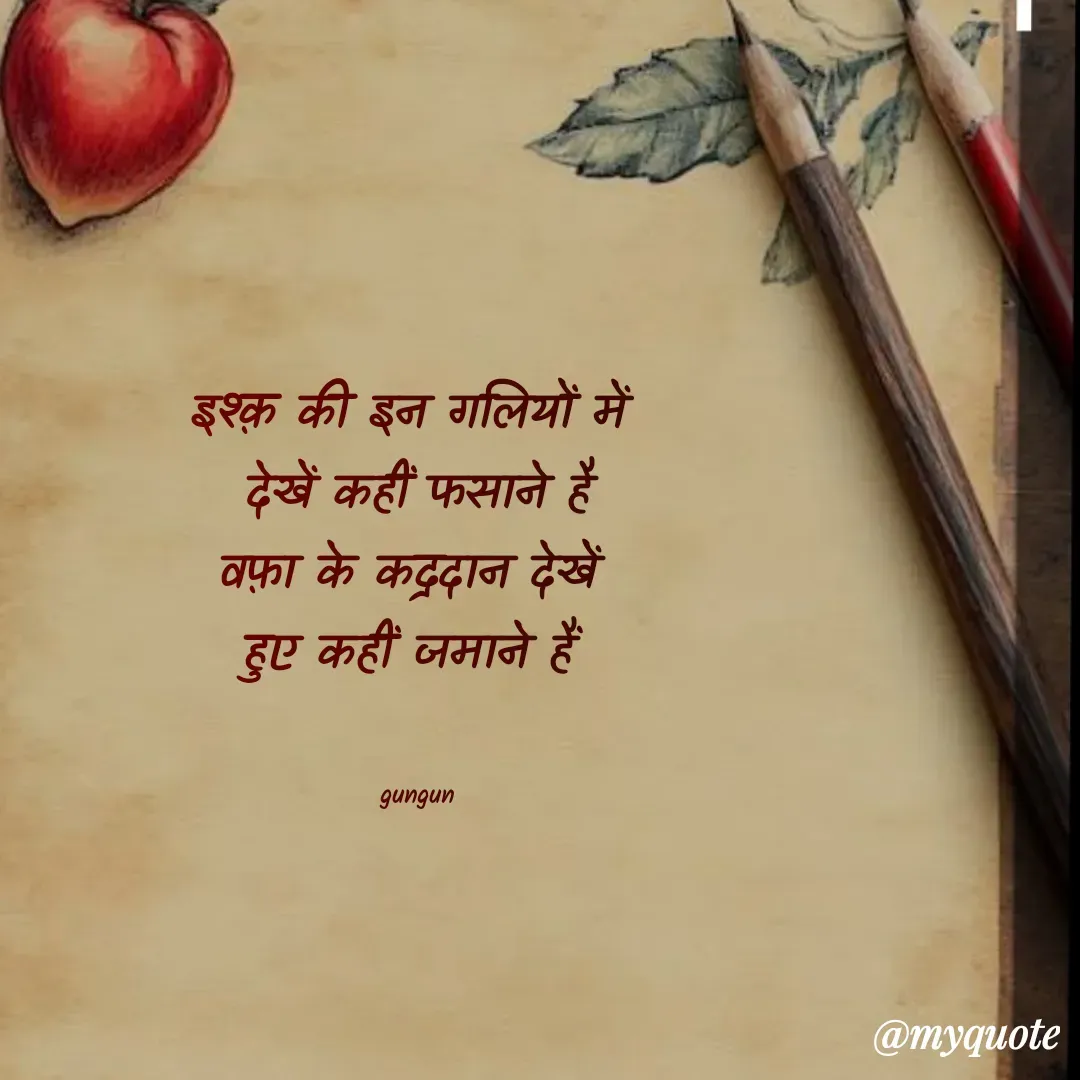 इश्क़ की इन गलियों में
देखें कहीं फसाने है
वफ़ा के कद्रदान देखें
हुए कहीं जमाने हैं
gungun
@myquote